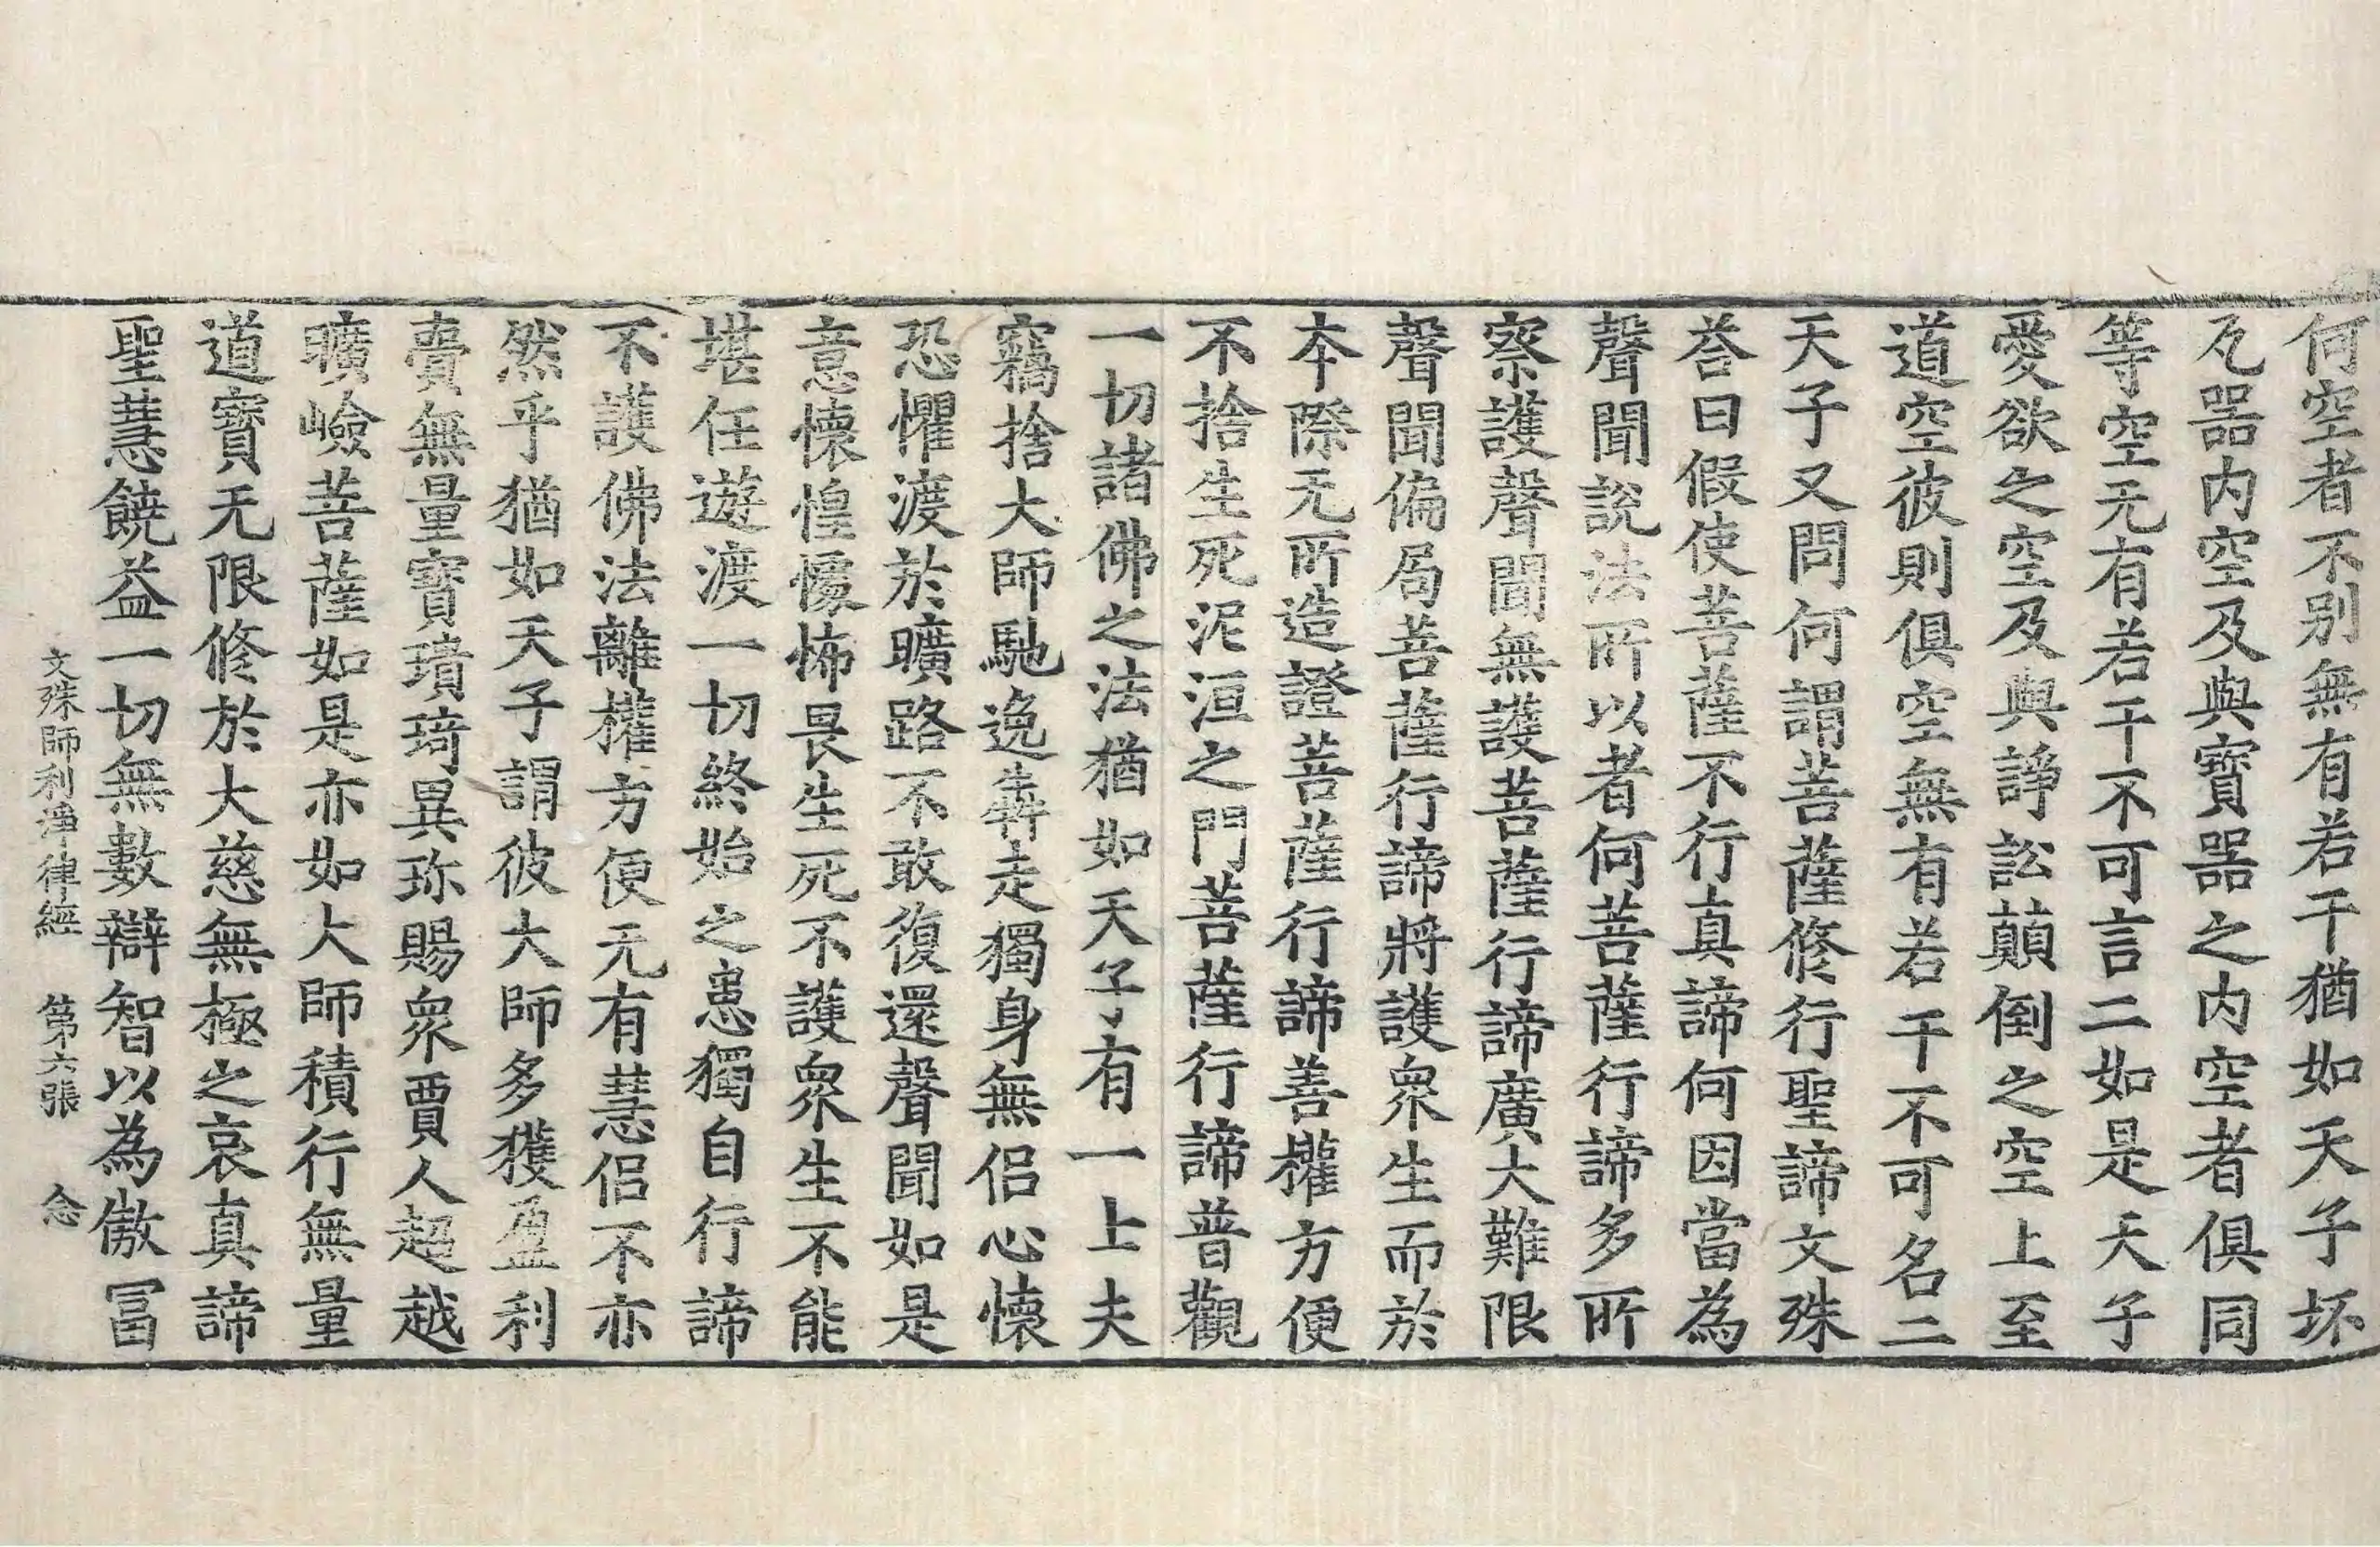 何空者不別無有若干猶如天子坏
瓦器内空及與寶器之内空者俱同
等空无有若干不可言二如是天子
愛欲之空及與諍訟顛倒之空上至
道空彼則俱空無有若干不可名二
天子又問何謂菩薩修行聖諦文殊
荅曰假使菩薩不行真諦何因當為
聲聞說法所以者何菩薩行諦多所
察護聲聞無護菩薩行諦廣大難限
聲聞偏局菩薩行諦將護衆生而於
本際无所造證菩薩行諦善權方便
不捨生死泥洹之門菩薩行諦普觀
一切諸佛之法猶如天子有一上夫
竊捨大師馳逸犇走獨身無侶心懷
恐懼渡於曠路不敢復還聲聞如是
意懷惶懅怖畏生死不護衆生不能
堪任遊渡一切終始之患獨自行諦
不護佛法離權方便无有慧侶不亦
然乎猶如天子謂彼大師多獲盈利
賷無量寶璝琦異珎賜衆賈人超越
曠嶮菩薩如是亦如大師積行無量
道寶无限修於大慈無極之哀真諦
聖慧饒益一切無數辯智以為儌冨
文殊師利淨律經 第六張 念